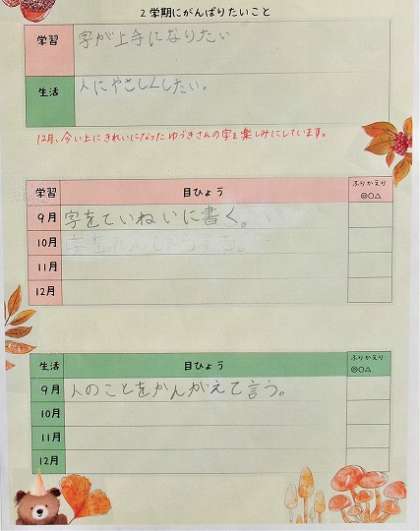 2学期にがんばりたいこと
学習 字が上手になりたい
生活 人にやさしくしたい。
12月、今い上にきれいになったゆうきさんの字を楽しみにしています。
学習 目ひょう ふりかえり ◎○△
9月 字をていねいに書く。
10月
11月
12月
生活 目ひょう ふりかえり ◎○△
9月 人のことをかんがえて言う。
10月
11月
12月